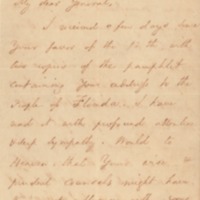 My dear General,
I received a few days since
your favor of the 12th, with
two copies of the pamphlet
containing your address to the
People of Florida. I have
read it with profound attention
& deep sympathy. Would to
Heaven that your wise &
prudent counsels might have